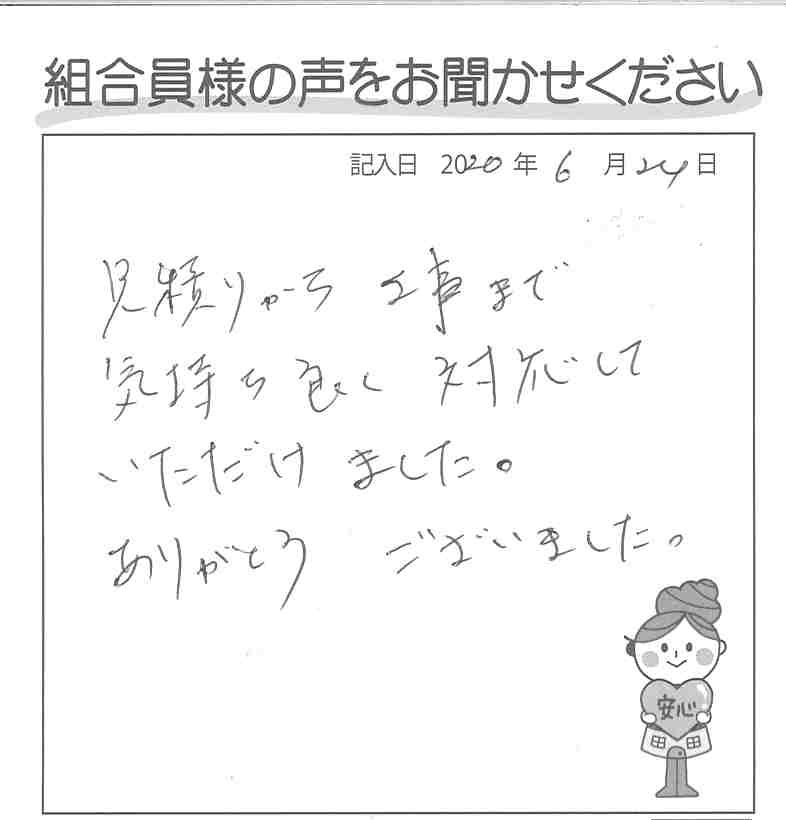 組合員様の声をお聞かせください
記入日 2020年6月24日
見積りから 工事まで
気持ち良く 対応して
いただけました。
ありがとう ございました。
安心